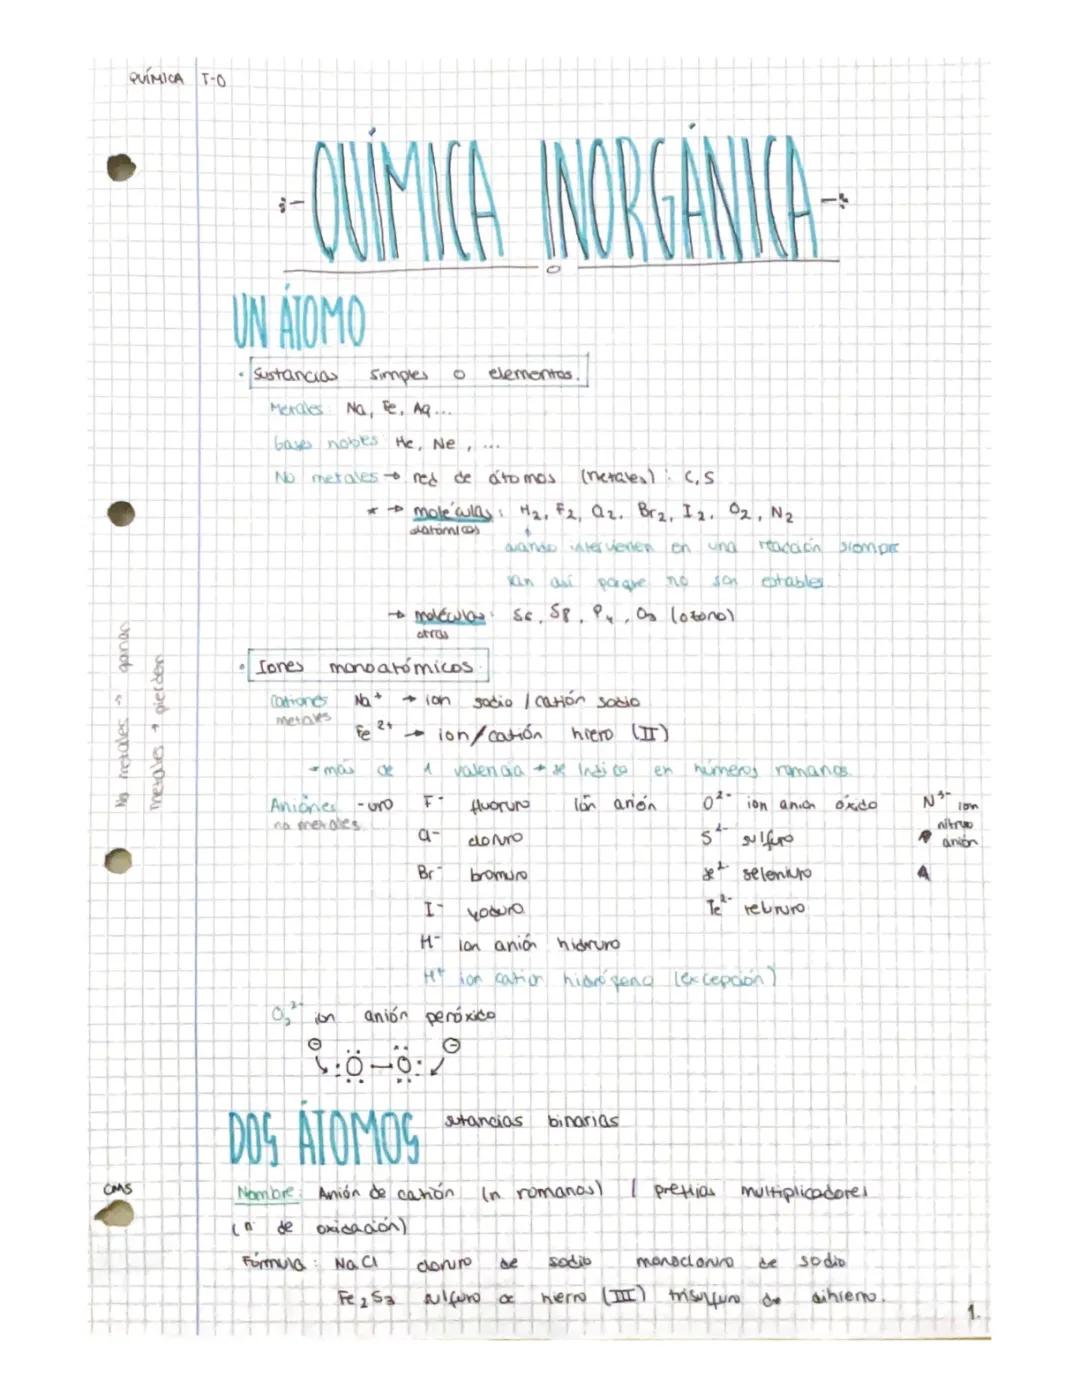 QUÍMICA T-0
QUÍMICA INORGÁNICA
UN ÁTOMO
· Sustancias simples o elementos.
Metales: Na, Fe, Ag...
Gases nobles He, Ne, ...
No metales → red de átomos (metales): C, S
* → moléculas: H₂, F₂, Cl₂, Br₂, I₂, O₂, N₂
diatómicas
cuando intervienen en una reacción siempre
van así porque no son estables.
→ moléculas: S₆, S₈, P₄, O₃ (ozono)
otras
· Iones monoatómicos.
Cationes Na⁺ → ion sodio / catión sodio
metales
Fe²⁺ → ion/catión hierro (II)
→ más de 1 valencia → se indica en números romanos.
Aniones -uro F⁻ fluoruro ión anión O²⁻ ion anión óxido N³⁻ ion
no metales nitruro
Cl⁻ cloruro S²⁻ sulfuro anión
Br⁻ bromuro Se²⁻ seleniuro
I⁻ yoduro Te²⁻ telururo
H⁻ ion anión hidruro
H⁺ ion catión hidrógeno (excepción)
O₂²⁻ ion anión peróxido
⊖ ⊖
:O—O:
DOS ÁTOMOS sutancias binarias
Nombre: Anión de catión (n romanos) / prefijos multiplicadores
(nº de oxidación)
Fórmula: NaCl cloruro de sodio monocloruro de sodio
Fe₂S₃ sulfuro de hierro (III) trisulfuro de dihierro.
1.
No metales → ganan
metales → pierden
CMS